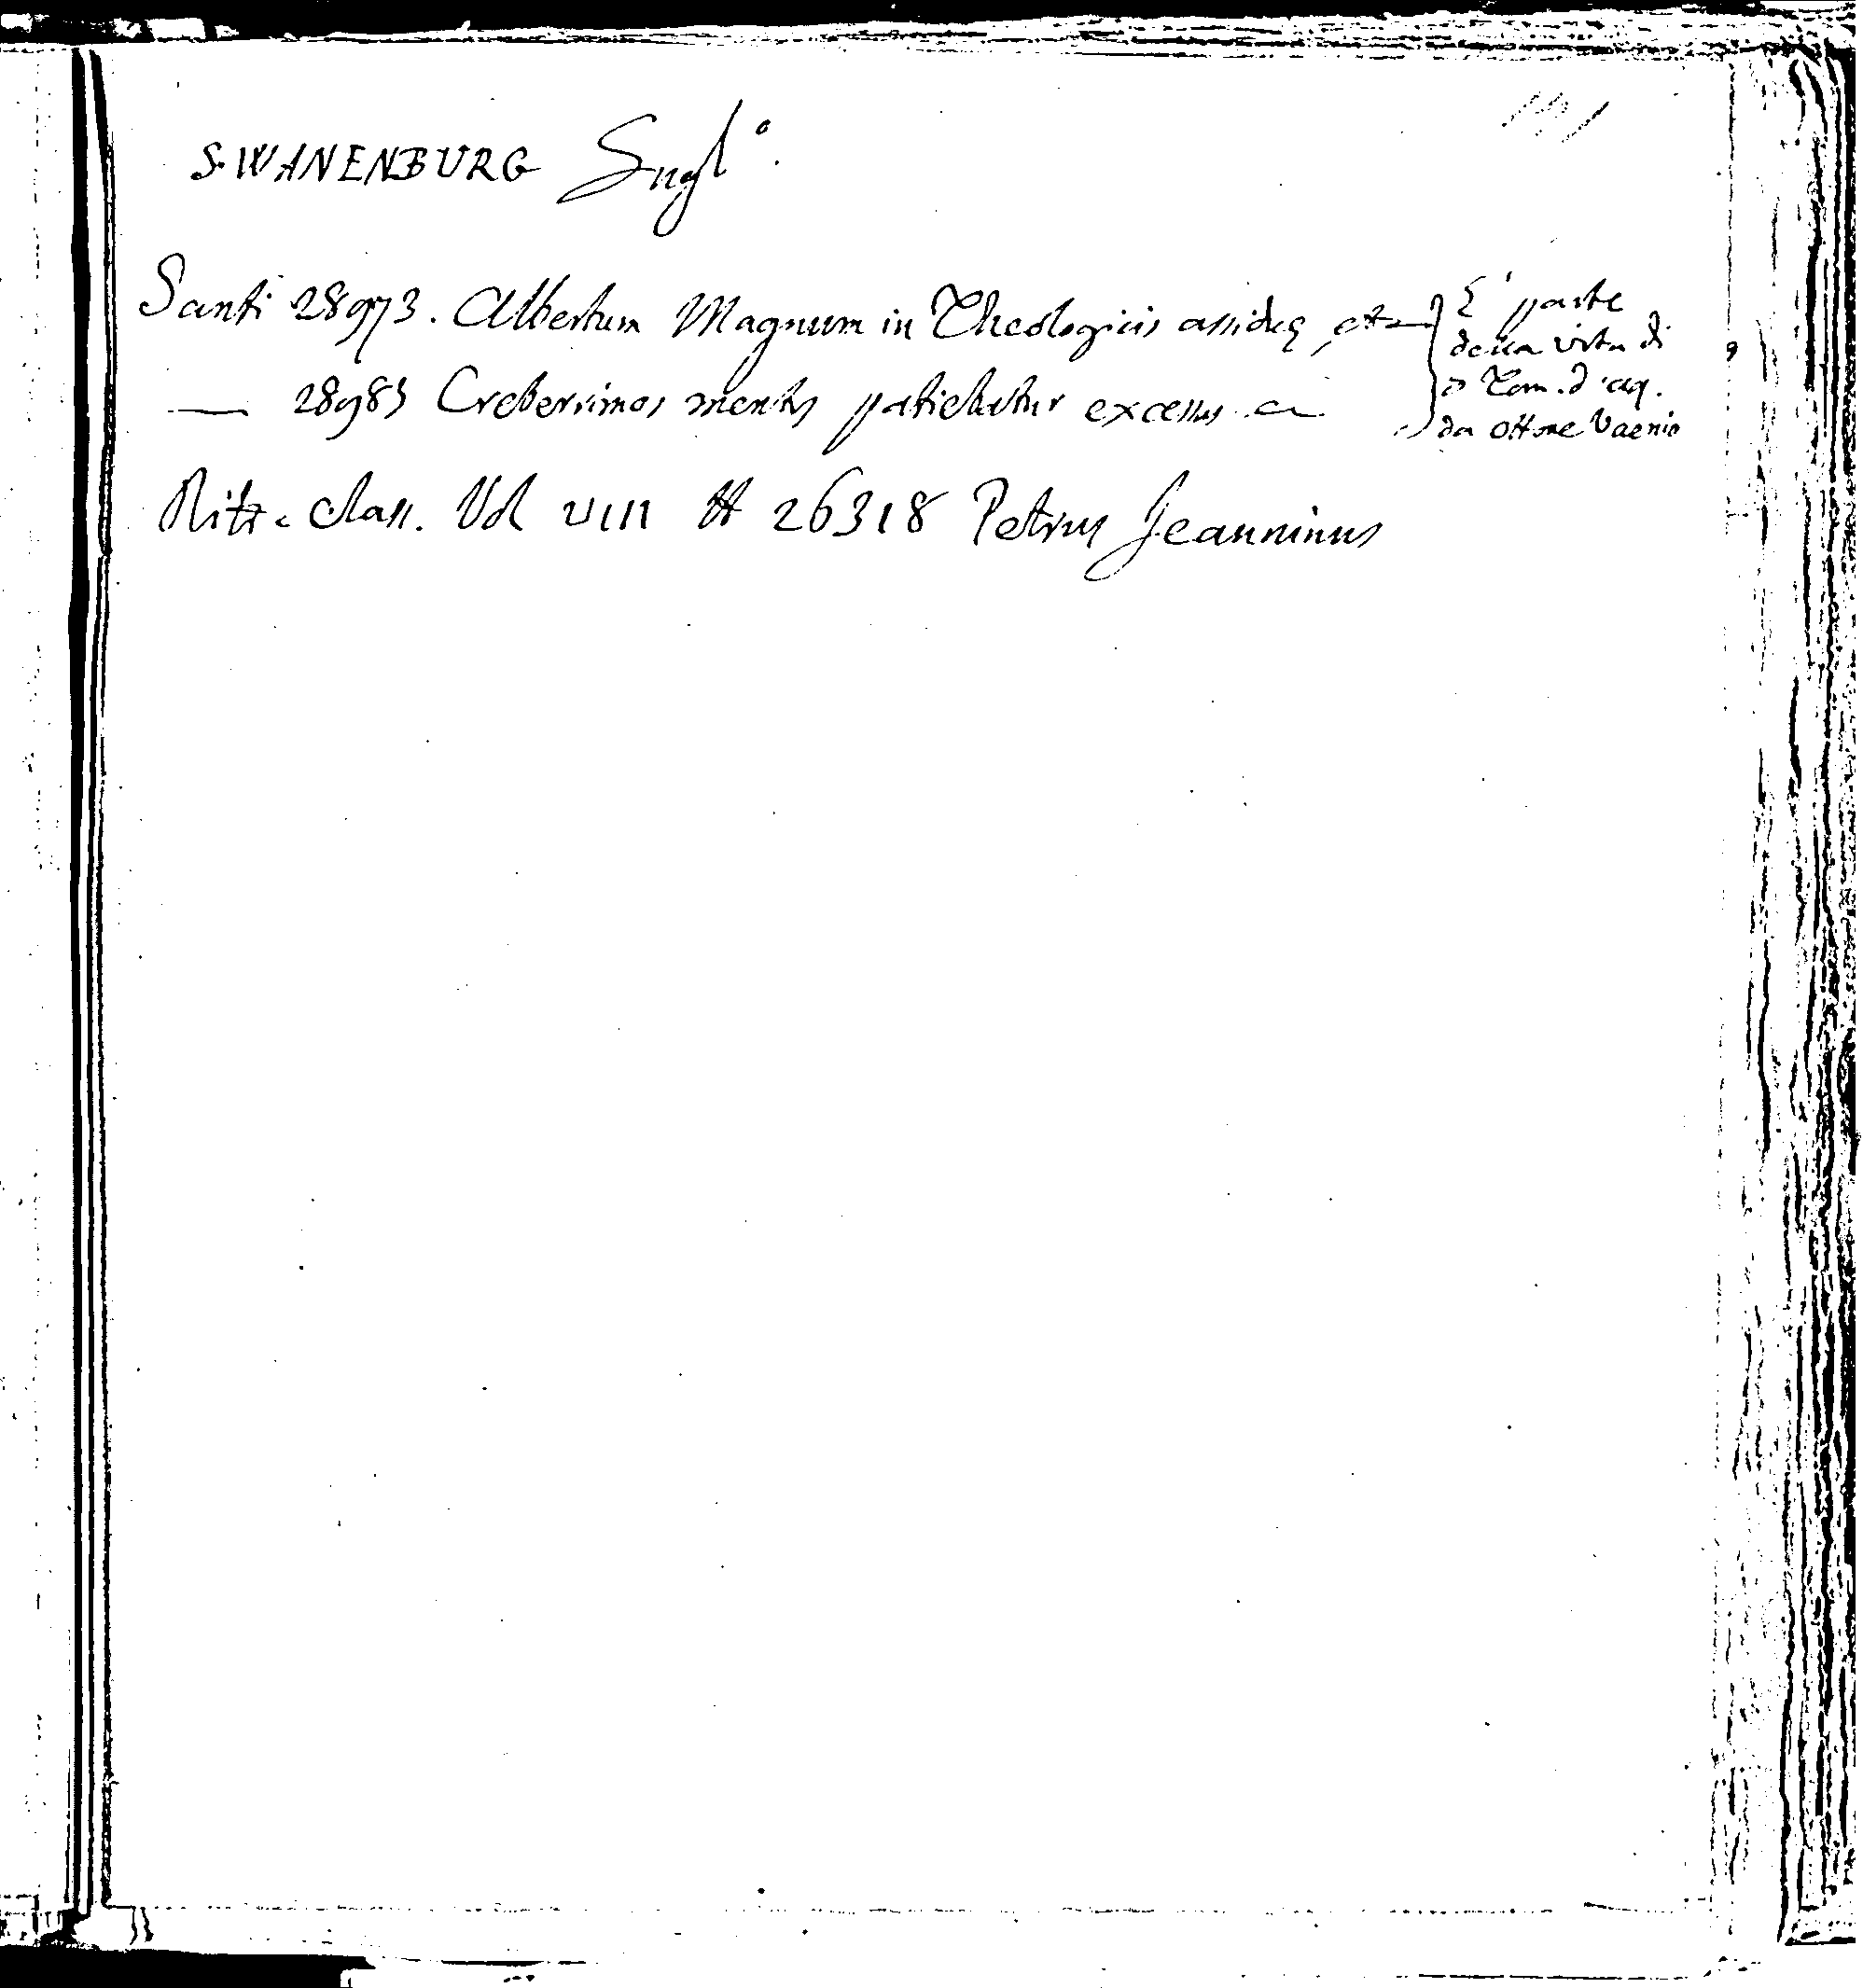 SWANENBURG Sngl°.
Santi 28973. Albertum Magnum in Theologicis assidue, etc
— 28985 Creberrimos mentis patiebatur excessus
E' parte
della vita di
S Tom. d'aq.
da Ottone Vaenio
Ritr. class. Vol VIII # 26318 Petrus Jeanninus